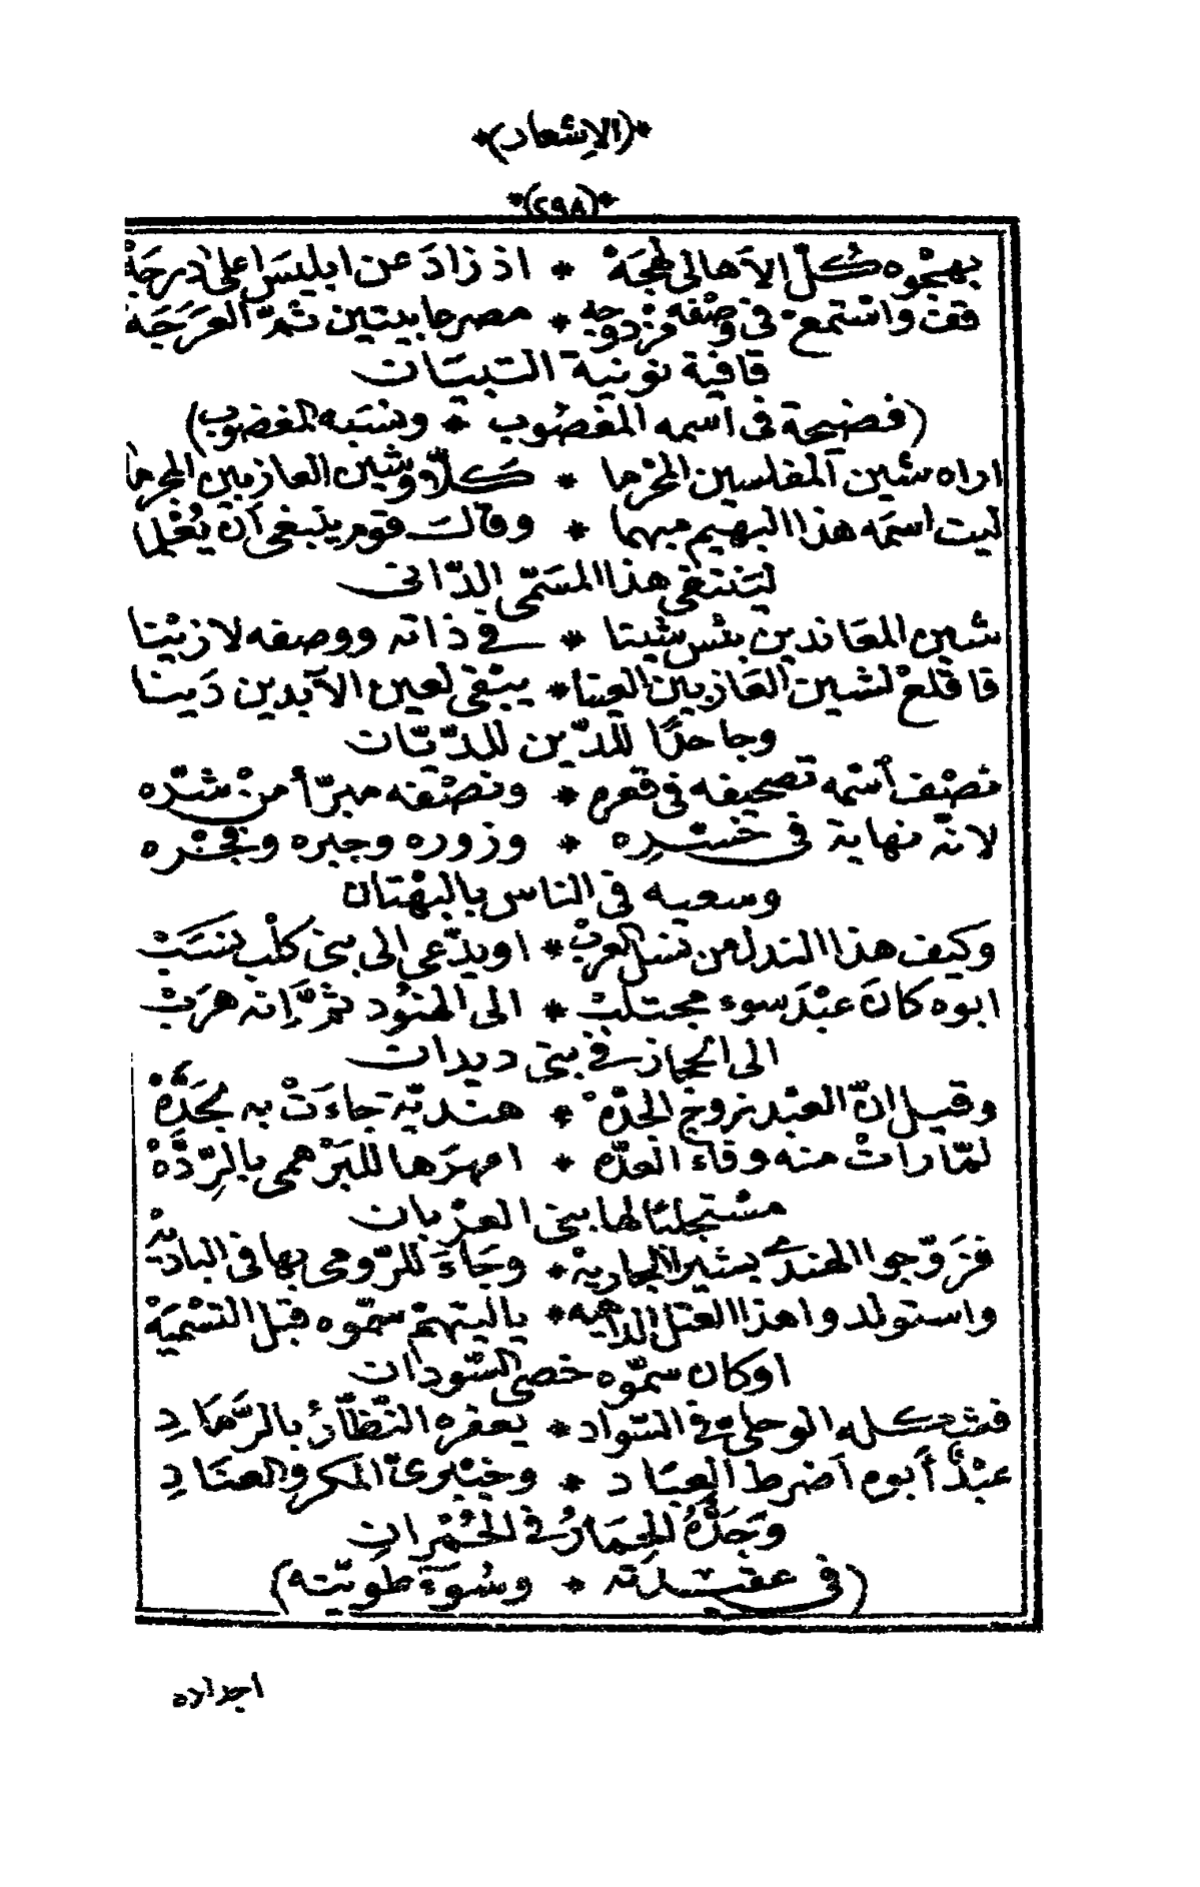 *(الاشعار)*
*(٢٩٨)*
يهجوه كلّ الاهالى لهجَهْ * اذ زادَ عن ابليسَ اعلىٰ درجَهْ
فقف واسْتمعْ فى وصْفه مزدوجه * مصرعا بيتين ثمّ العرَجَهْ
قافية نونية التبيتات
(فضيحة فى اسمه المغصُوب * ونسَبه المغضوب)
اراه شين المفلسين المحْرما * كلّا وشين العازبين المجرما
ليت اسمَه هذا البهيم مبهما * وقالَ قوم ينبغى ان يُعْلما
لينتفى هذا المسَمّى الدّانى
شين المعَاندين بئس شيتا * فى ذاته ووصفه لازيْنا
فاقلعْ لشين العَازبين العينا * يبْقى لعين الآبدين دَينا
وجاحدًا للدّين للدّيّات
نصْف أسْمه تصحيفه فى قعره * ونصْفه مبرّأ من شرّه
لانّه نهاية فى خسْره * وزوره وجبره وفجْره
وسعيه فى الناس بالبهْتان
وكيف هذا النذل من نسْل العربْ * او يدّعى الى بنى كلْب نسَبْ
ابوه كانَ عبْدَ سوء مجتلبْ * الى الهنُود ثمَّ إنه هرَبْ
الى الحجاز فى بنى ديدات
وقيل انّ العبْد زوج الجدّهْ * هنديّة جاءَتْ به بجَدَّهْ
لمّا راتْ منه وفاءَ العدّه * امهرَها للبَرْهمى بالرِّدَّهْ
مسْتجلبًا لها بنى العزْبان
فزوّجوا الهندى بشير الجاريهْ * وجَاءَ للرّومى بها فى الباديهْ
واستولدوا هذا العتل الداهيه * ياليتهمْ سمّوه قبْل التسْميَهْ
اوكان سمّوه خصى السّودان
فشكله الوحلىّ فى السّوادِ * يعفره النّظّارُ بالرَّمَادِ
عبْدٌ أبوه اضرط العِبَادِ * وخيبرىّ المكر والعنَادِ
وجَدُّهُ الحِمَارُ فى الحُمْرانِ
(فى عقيدته * وسُوءَ طويّته)
اجداده